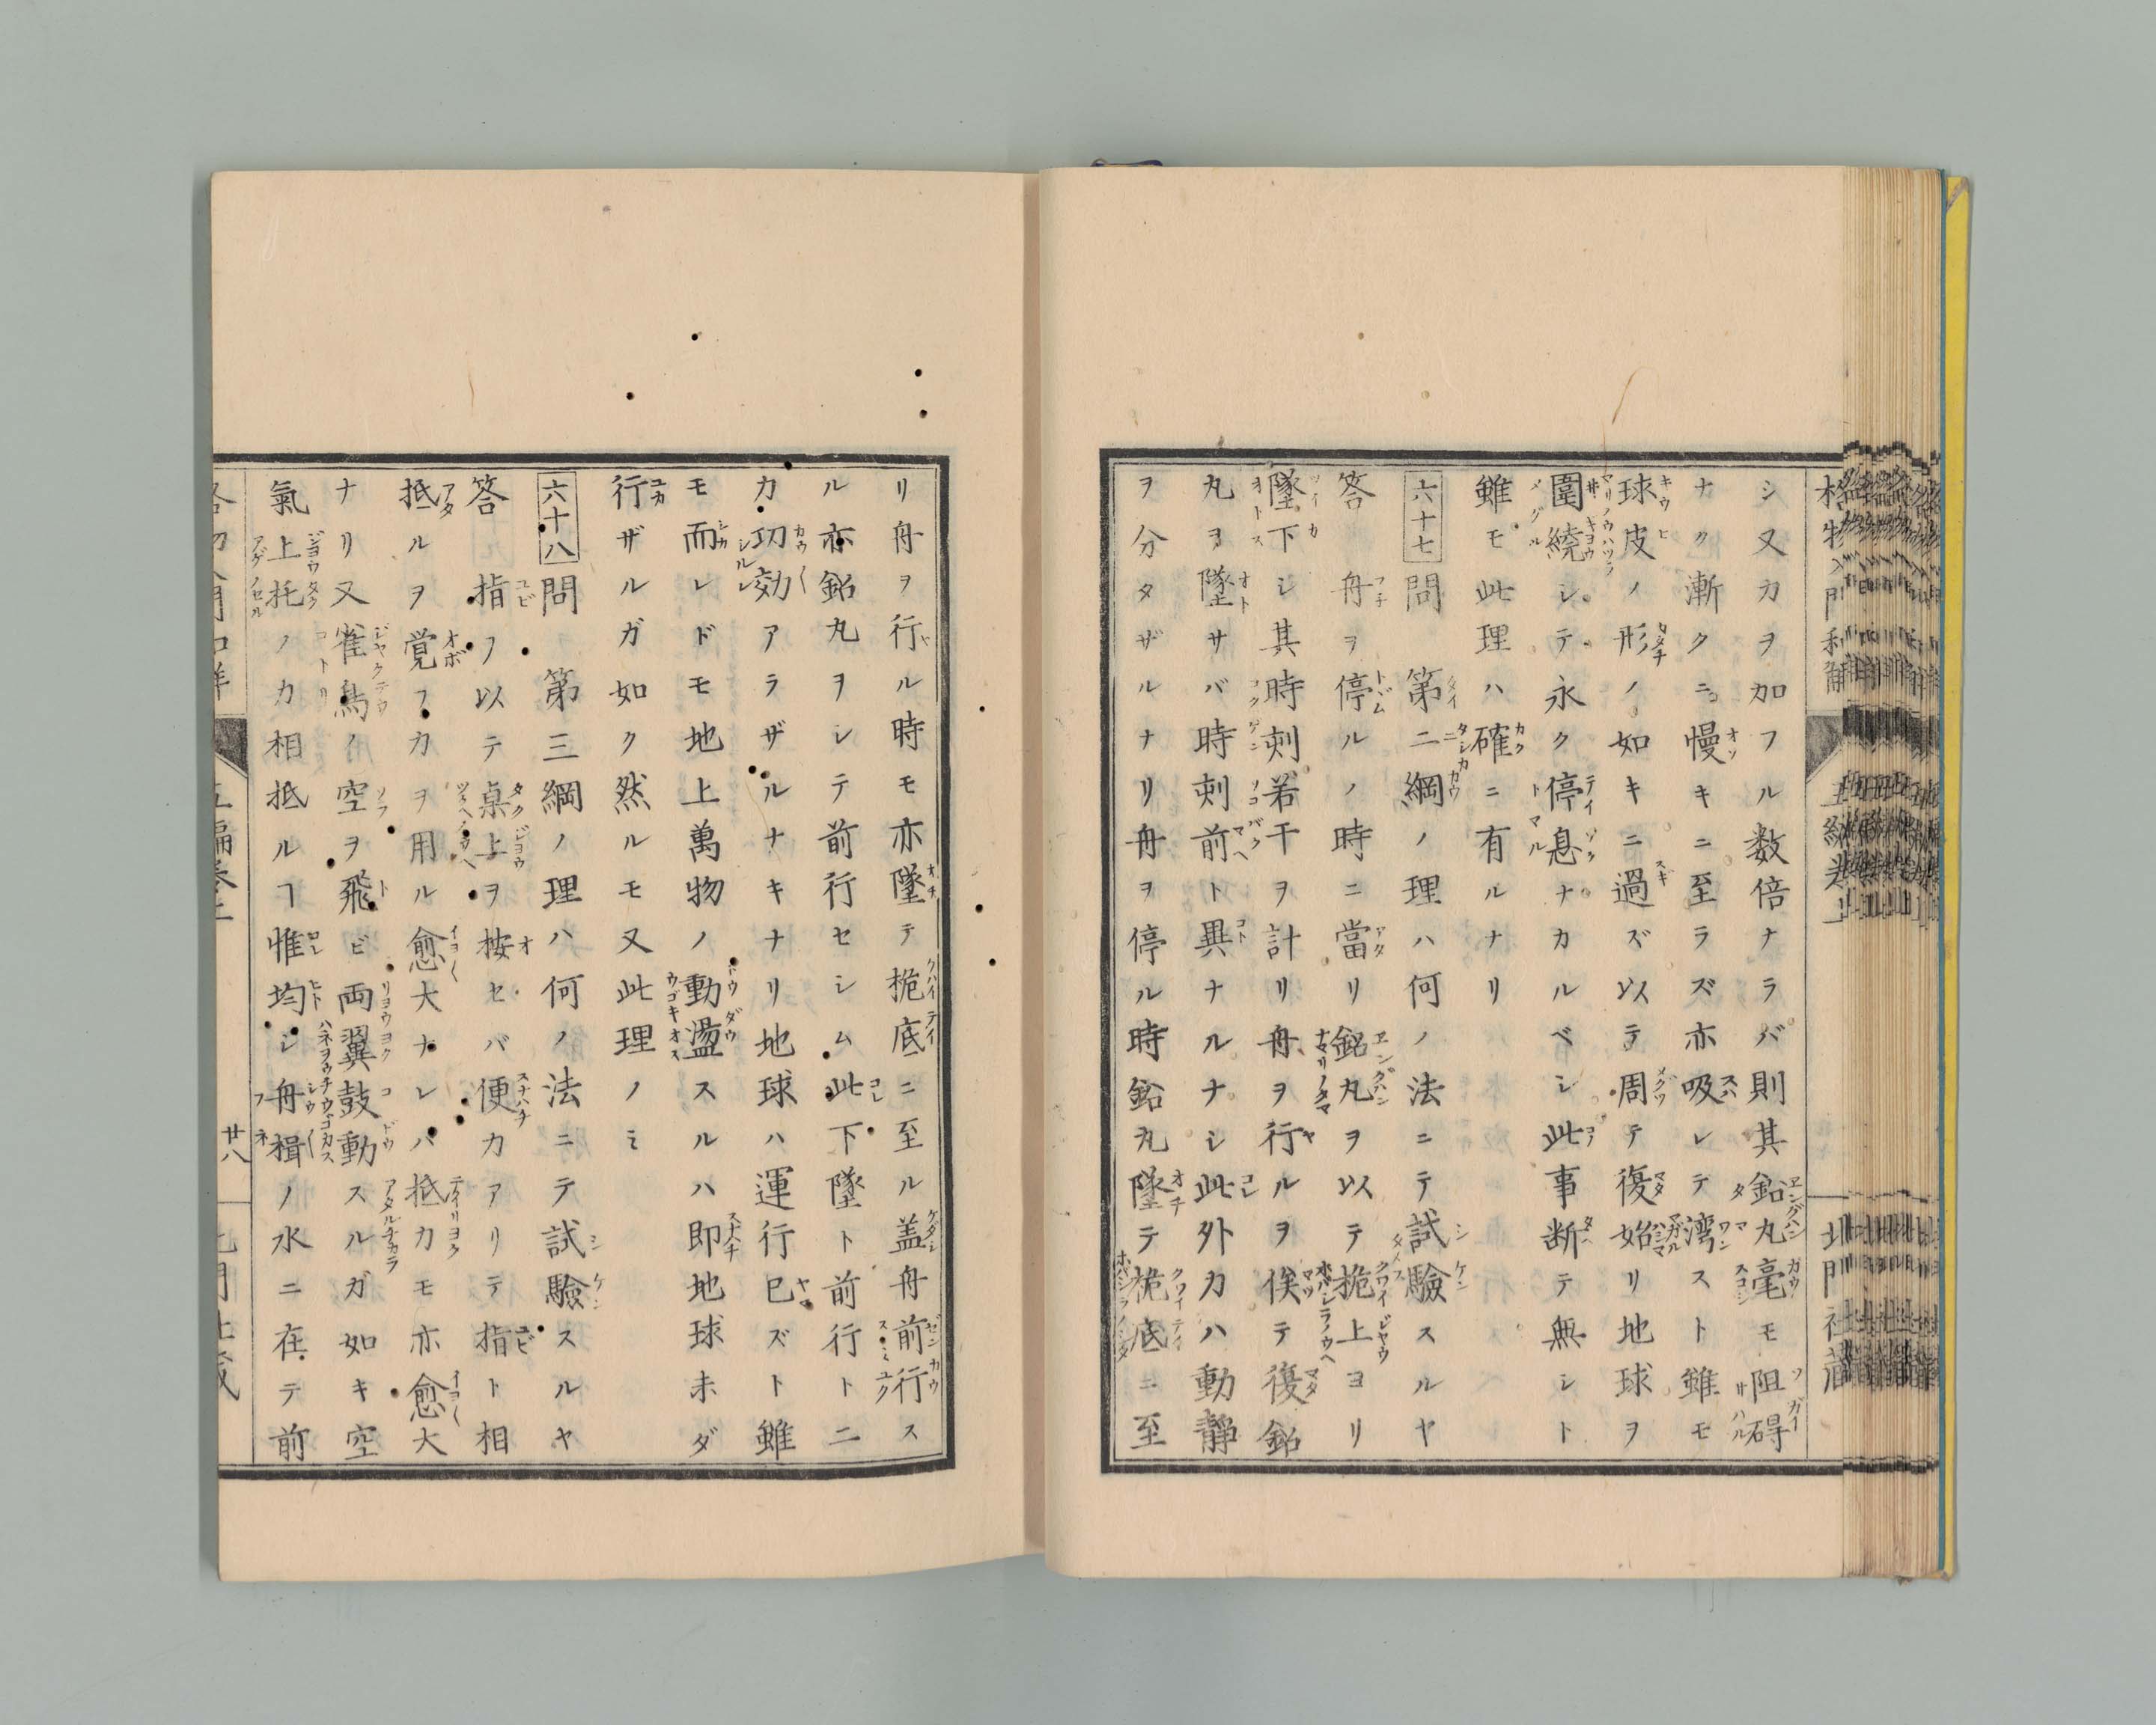 シ又力ヲ加フル数倍ナラバ則其鉛丸毫モ阻碍
ナク漸クニ慢キニ至ラズ亦吸レテ湾スト雖モ
球皮ノ形ノ如キニ過ズ以テ周テ復始リ地球ヲ
圍繞シテ永ク停息ナカルベシ此事断テ無シト
雖モ此理ハ確ニ有ルナリ
六十七 問 第二綱ノ理ハ何ノ法ニテ試驗スルヤ
答 舟ヲ停ルノ時ニ當リ鉛丸ヲ以テ桅上ヨリ
墜下シ其時刻若干ヲ計リ舟ヲ行ルヲ俟テ復鉛
丸ヲ墜サバ時刻前ト異ナルナシ此外力ハ動静
ヲ分タザルナリ舟ヲ停ル時鉛丸墜テ桅底ニ至
リ舟ヲ行ル時モ亦墜テ桅底ニ至ル盖舟前行ス
ル亦鉛丸ヲシテ前行セシム此下墜ト前行ト二
力功効アラザルナキナリ地球ハ運行已ズト雖
モ而レドモ地上萬物ノ動盪スルハ即地球未ダ
行ザルガ如ク然ルモ又此理ノミ
六十八 問 第三綱ノ理ハ何ノ法ニテ試驗スルヤ
答 指フ以テ桌上ヲ按セバ便力アリテ指ト相
抵ルヲ覚フ力ヲ用ル愈大ナレバ抵力モ亦愈大
ナリ又雀鳥ノ空ヲ飛ビ両翼鼓動スルガ如キ空
氣上托ノ力相抵ルヿ惟均シ舟楫ノ水ニ在テ前
五編巻上
廿八